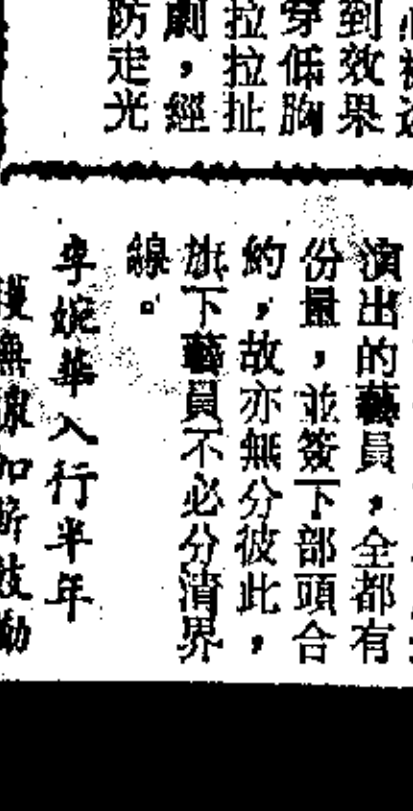 到效果
穿低胸
拉拉扯
劇，經
防走光
演出的藝員，全都有
份量，並簽下部頭合
約，故亦無分彼此，
旗下藝員不必分清界
線。
李婉華入行半年
獲無線加薪鼓勵